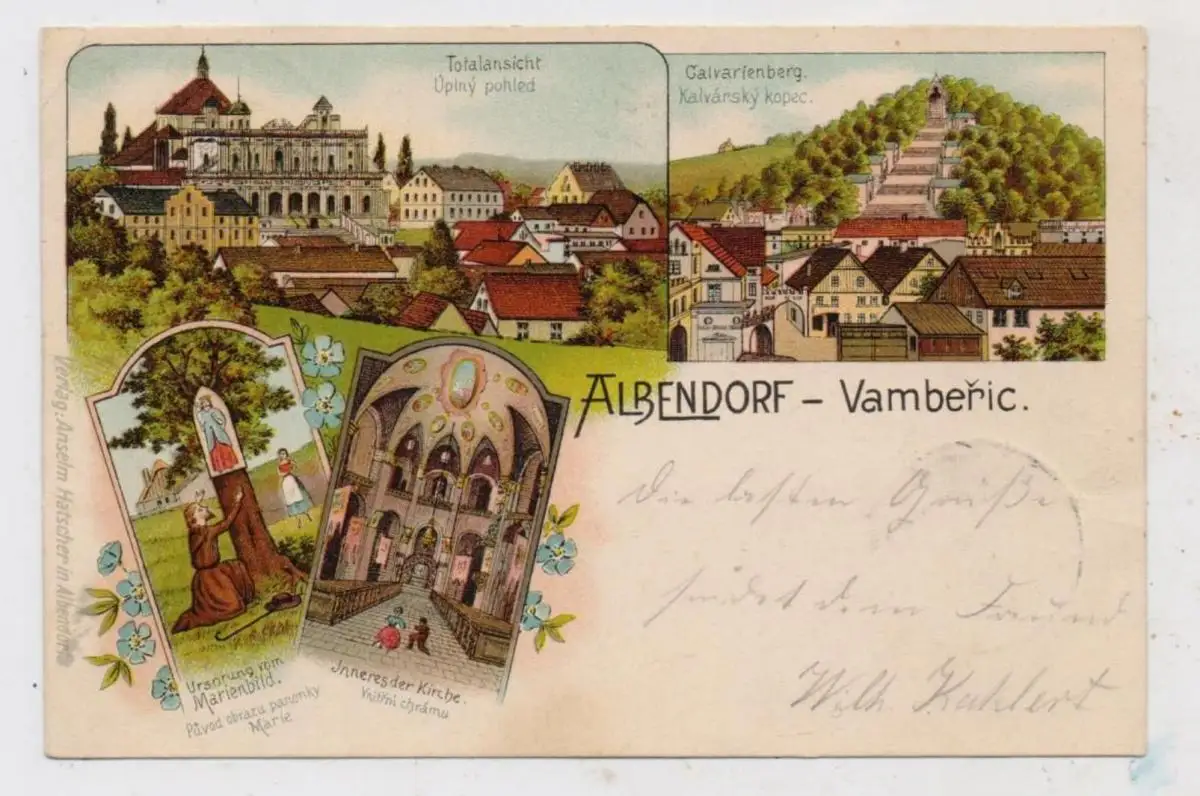 Totalansicht
Úplný pohled
Calvarienberg.
Kalvárský kopec.
ALBENDORF – Vambeřic.
Die besten Grüße
sendet dein Freund
Wilh. Kahlert
Ursprung vom
Marienbild.
Původ obrazu panenky
Marie
Inneres der Kirche.
Vnitřní chrámu
Verlag: Anselm Hatscher in Albendorf